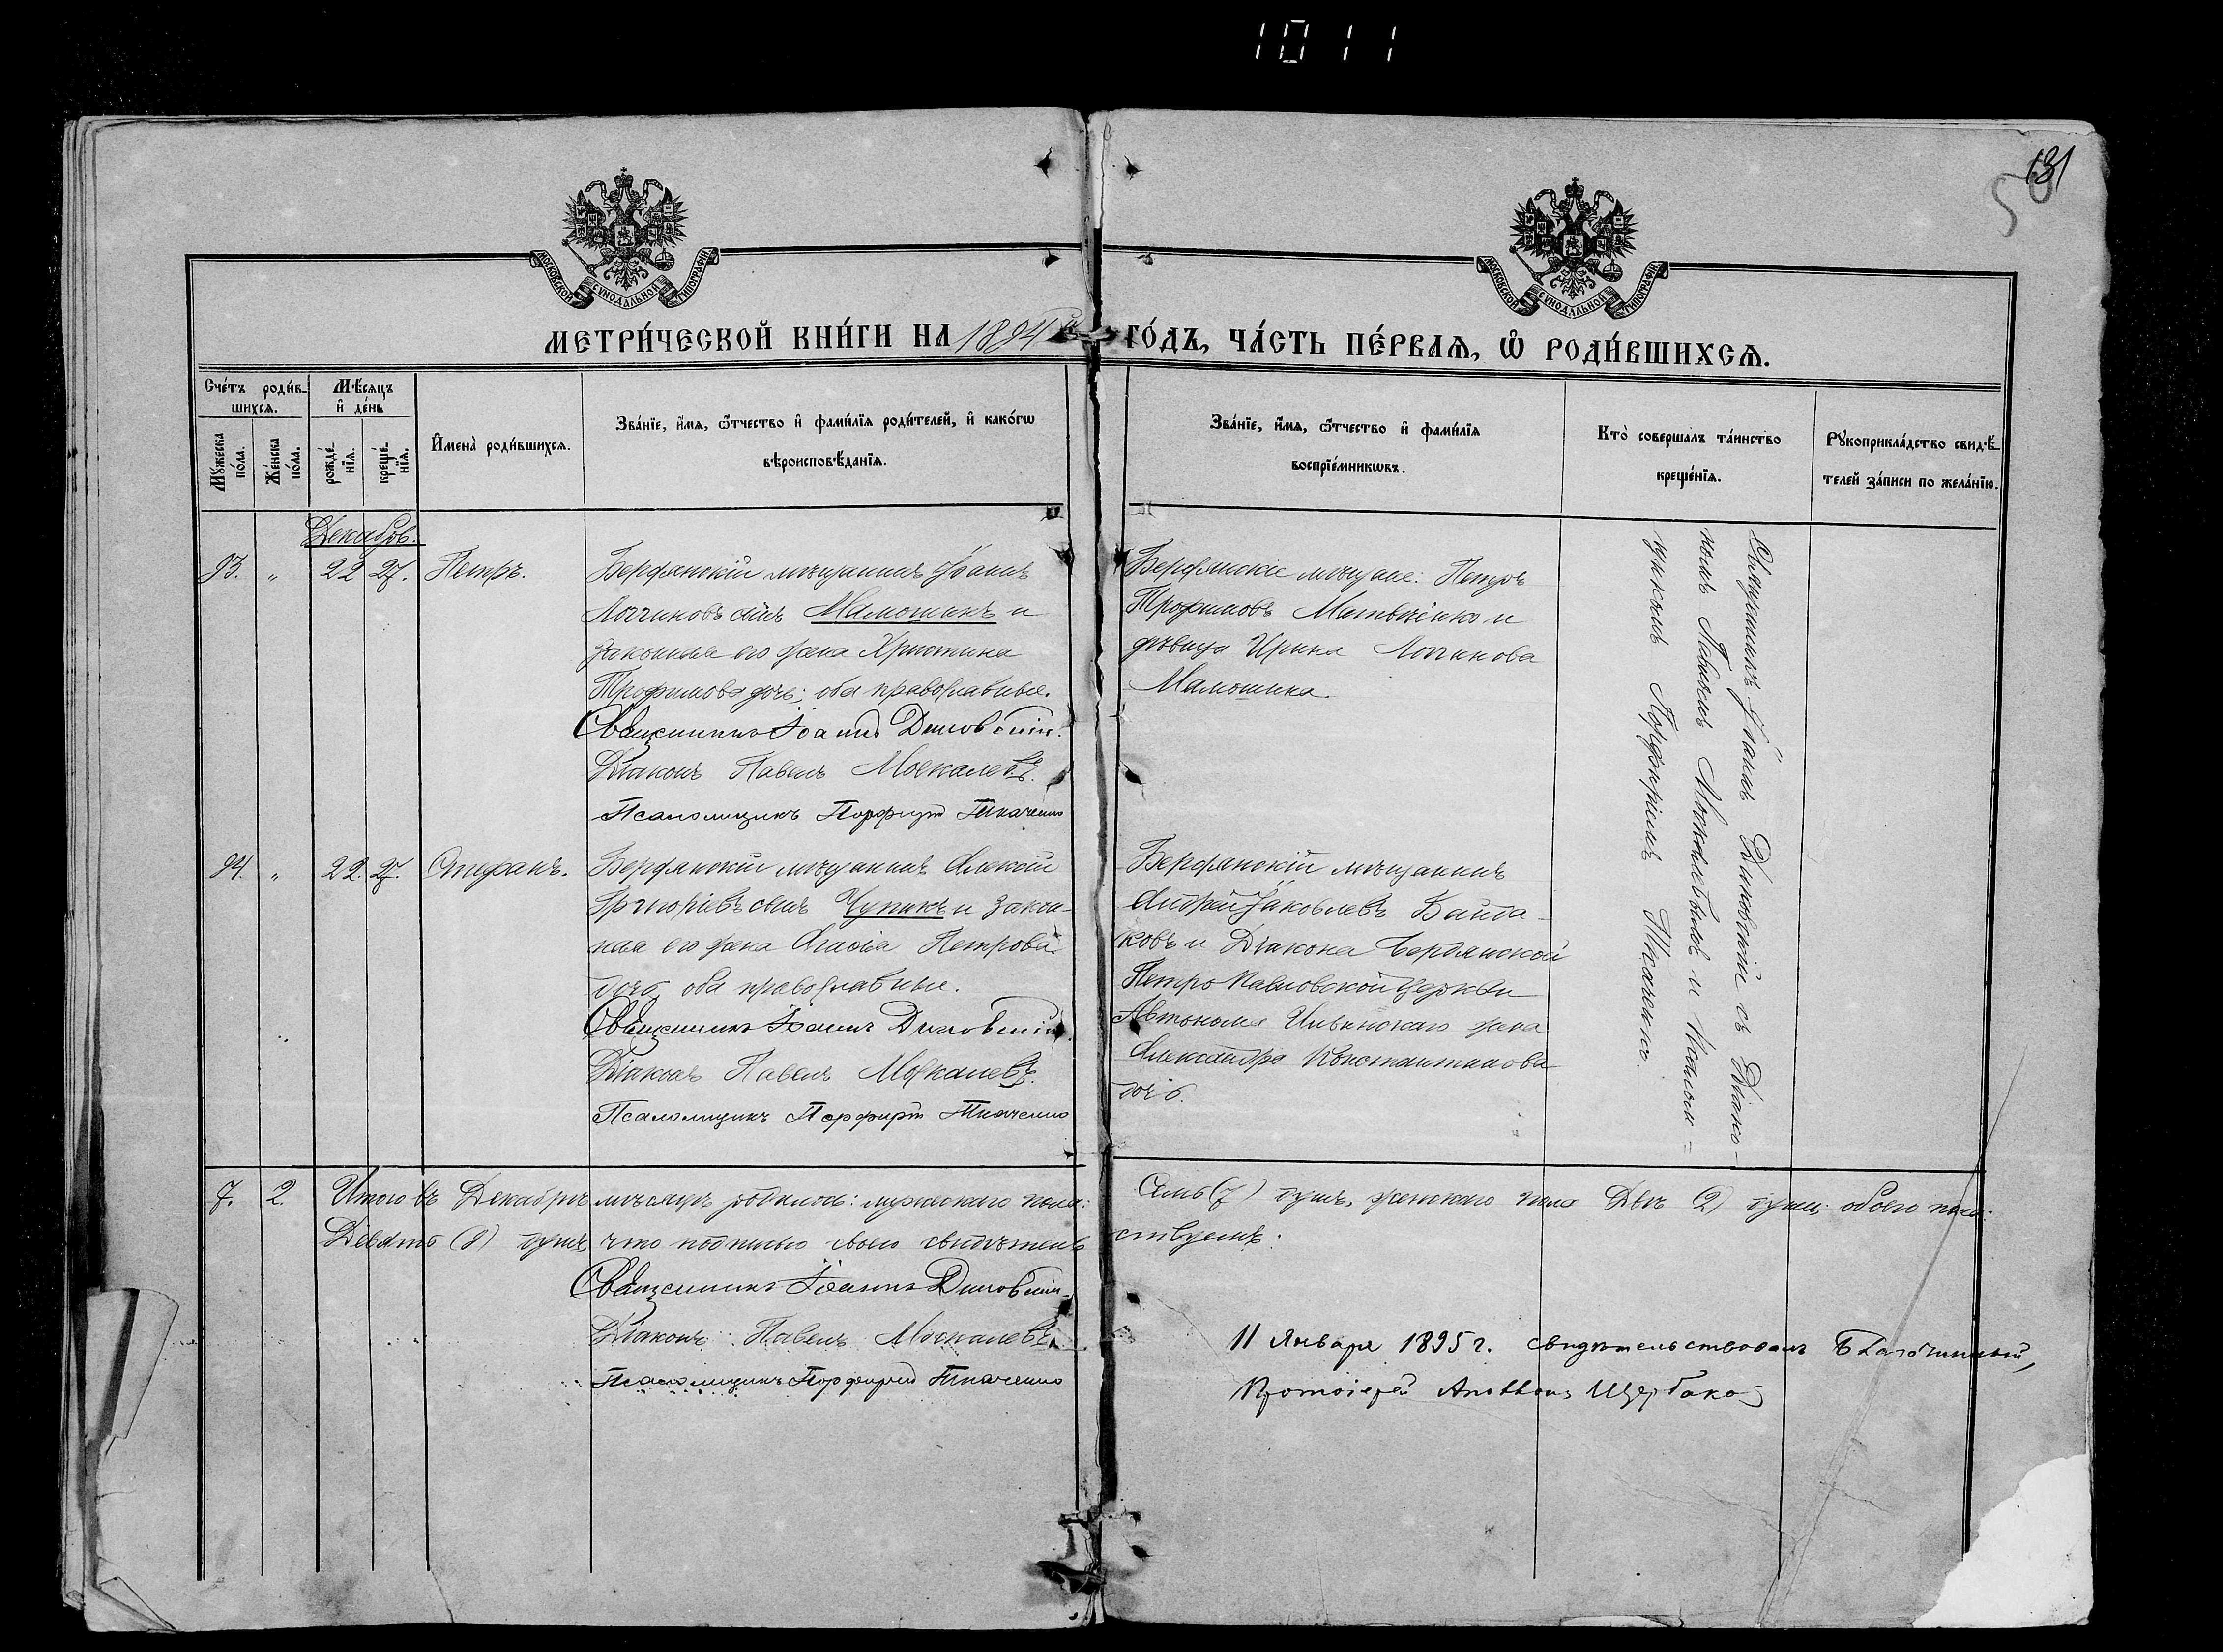 1011
131
50
МОСКОВСКОЙ СѴНОДАЛЬНОЙ ТИПОГРАФІИ
МОСКОВСКОЙ СѴНОДАЛЬНОЙ ТИПОГРАФІИ
МЕТРИ́ЧЕСКОЙ КНИ́ГИ НА 1894й ГО́ДЪ, ЧА́СТЬ ПЕ́РВАѦ, Ѽ РОДИ́ВШИХСѦ.
Сче́тъ роди́вшихсѧ.
Мѣ́сяцъ и҆ де́нь
Мꙋ́жеска по́ла.
Же́нска по́ла.
рожде́нїѧ.
креще́нїѧ.
И҆мена̀ роди́вшихсѧ.
Зва́нїе, и҆́мѧ, ѻ҆́тчество и҆ фами́лїѧ роди́телей, и҆ како́гѡ
вѣроисповѣ́данїѧ.
Зва́нїе, и҆́мѧ, ѻ҆́тчество и҆ фами́лїѧ
воспрїе́мникѡвъ.
Кто̀ соверша́лъ та́инство
креще́нїѧ.
Рꙋкоприкла́дство свидѣ́телей за́писи по жела́нїю.
Декабрь.
93. „ 22 27. Петръ.
Бердянскій мѣщанинъ Іоаннъ
Логгиновъ сынъ Мамошинъ и
законная его жена Христина
Трофимова дочь; оба православные.
Священникъ Іоаннъ
Діаконъ Павелъ Москалевъ.
Псаломщикъ Порфирій Ткаченко
Бердянскіе мѣщане: Петръ
Трофимовъ Матвѣенко и
дѣвица Ирина Логгинова
Мамошина.
Священникъ Іоаннъ съ Діакономъ Павломъ Москалевымъ и Псаломщикомъ Порфиріемъ Ткаченко.
94. „ 22. 27. Стефанъ.
Бердянскій мѣщанинъ Алексій
Григоріевъ сынъ Чупикъ и законная его жена Агафія Петрова
дочь оба православные.
Священникъ Іоаннъ
Діаконъ Павелъ Москалевъ.
Псаломщикъ Порфирій Ткаченко
Бердянскій мѣщанинъ
Андрей Іаковлевъ Байдаковъ и Діакона Бердянской
Петро Павловской церкви
Автонома жена
Александра Константинова
дочь.
7. 2. Итого въ Декабрѣ мѣсяцѣ родилось: мужескаго пола: Семь (7) душъ, женскаго пола Двѣ (2) души, обоего пола:
Девять (9) душъ что подписью своею свидѣтельствуемъ:
Священникъ Іоаннъ
Діаконъ Павелъ Москалевъ.
Псаломщикъ Порфирій Ткаченко
11 Января 1895 г. свидѣтельствовалъ Благочинный,
Протоіерей Щербаковъ